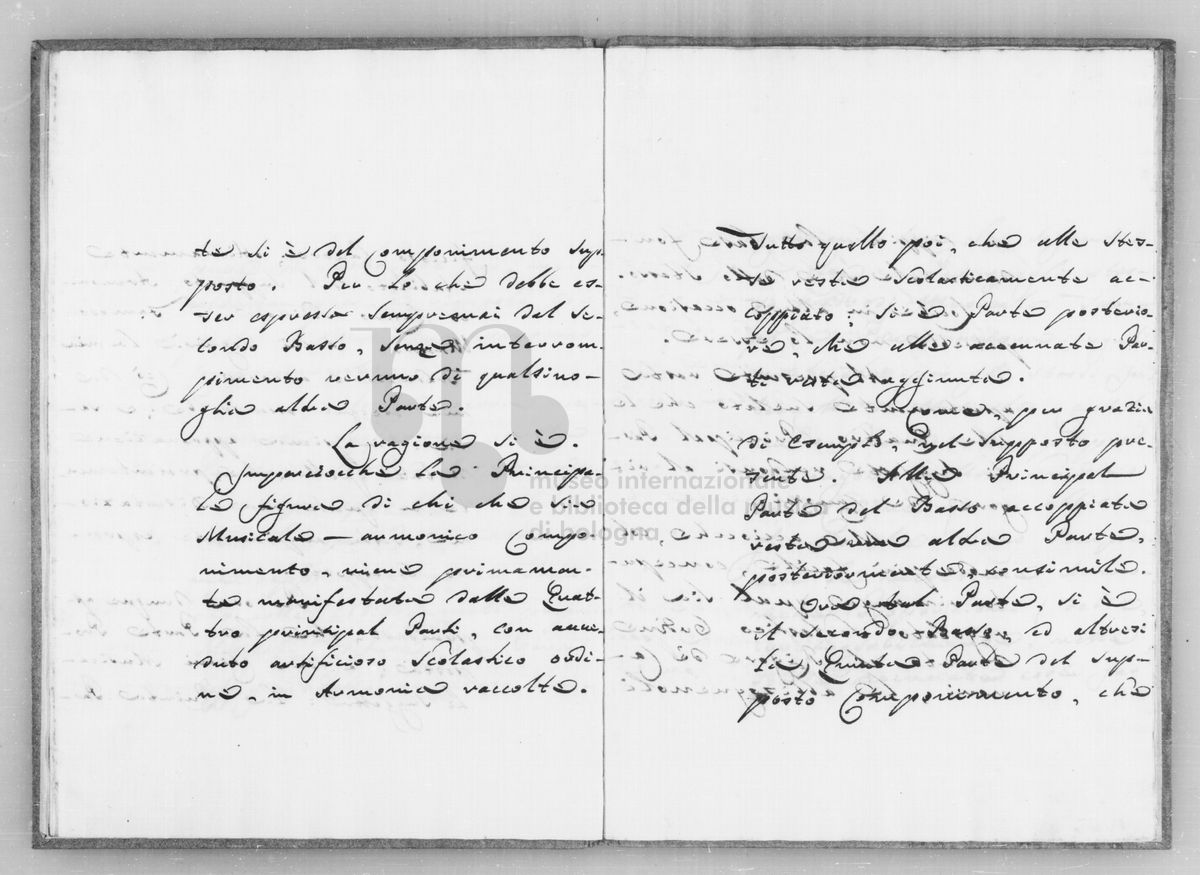 te si è del Componimento sup-
posto. Per lo che debbe es-
ser espressa sempremai dal Se-
condo Basso, senza interrom-
pimento veruno di qualsivo-
glia altra Parte.
La ragione si è.
Imperciocchè la Principa-
le figura di chi che sia
Musicale - armonico Compo-
nimento, viene primamen-
te manifestata dalle Quat-
tro principal Parti, con avve-
duto artificioso Scolastico ordi-
ne, in Armonia raccolte.
Tutto quello poi, che alle stes-
se resta Scolasticamente ac-
coppiato, si è Parte posterio-
re, che alle accennate Par-
ti resta raggiunta.
Come, per grazia
di Esempio, nel Supposto pre-
sente. Alla Principal
Parte del Basso accoppiata
resta una altra Parte,
posteriormente, consimile.
Ora tal Parte, si è
il Secondo Basso, ed altresì
la Quinta Parte del sup-
posto Componimento, che
museo internazionale
e biblioteca della musica
di bologna